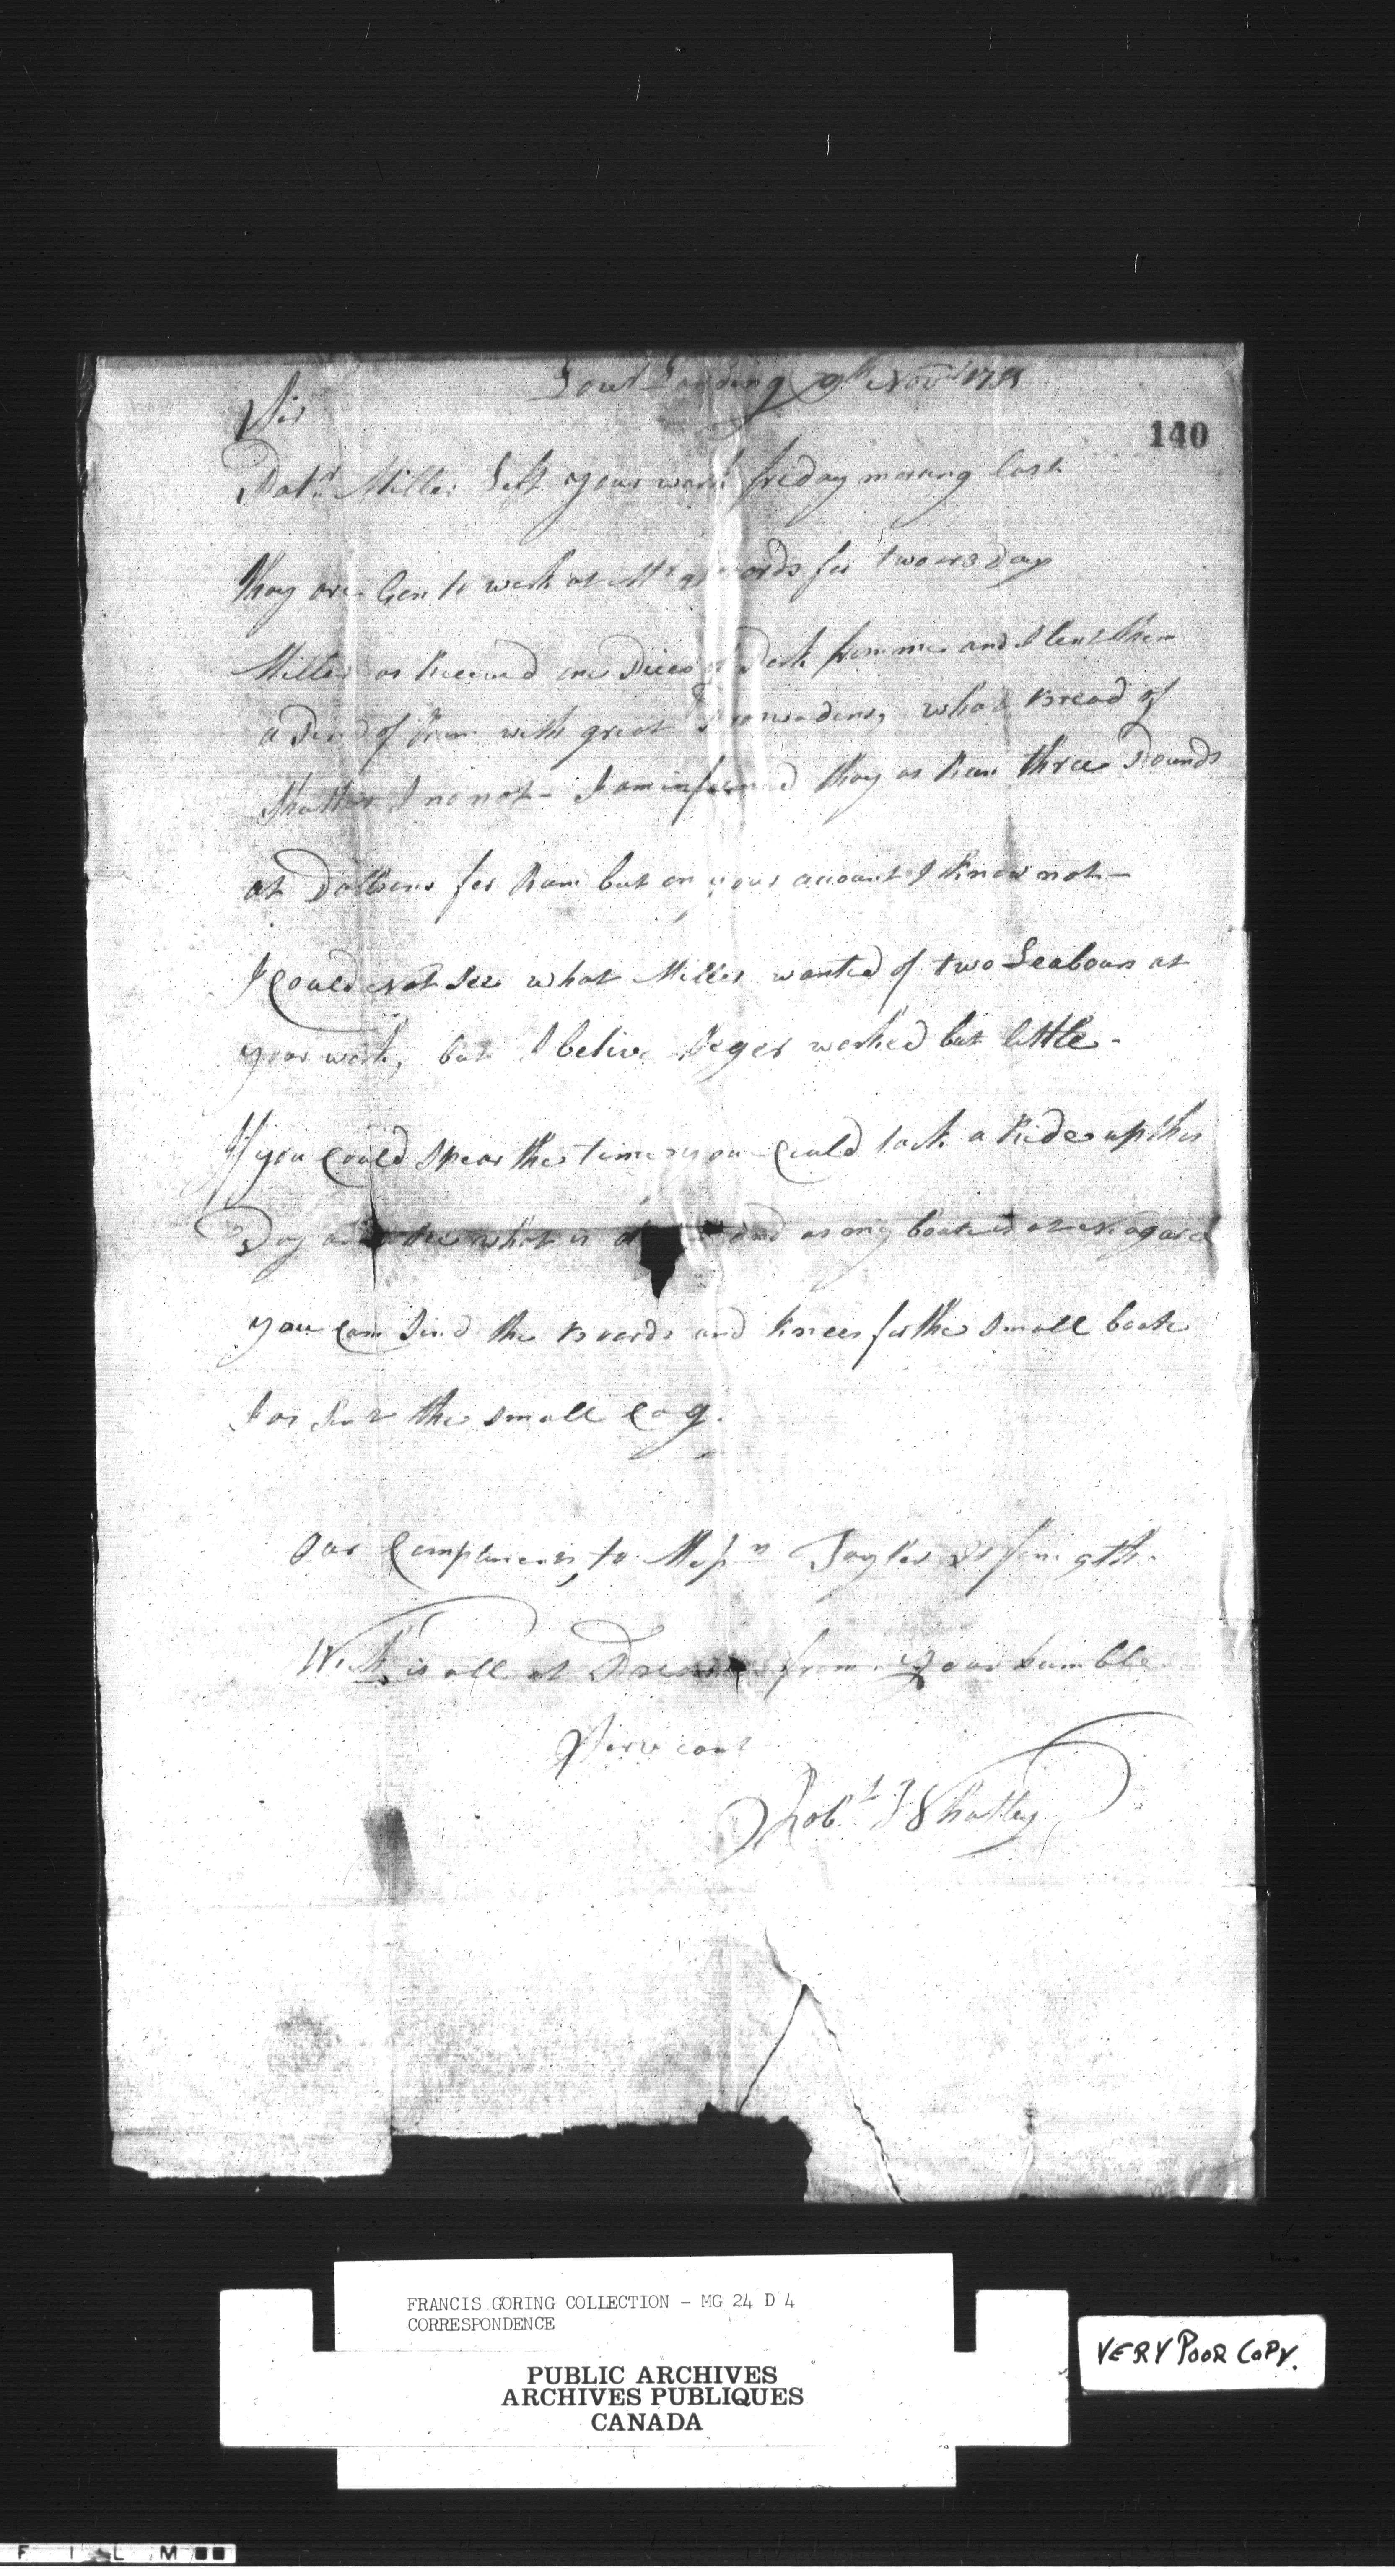 Low.r Landing 9th Nov.r 1781
Sir
140
Pat.k Miller Left your work friday morning last
thay are Gon to work at Mr for two or 3 Day
Miller as Receved one Piece of Pork from me and I lent them
a of Rum with great what Bread of
Whatleys I no not - I am informed thay as Run three Pounds
at Dolsens for Rum but on your account I know not -
I Could Not See what Miller wanted of two Leabours at
your work, but I belive worked but little -
If you Could Spear the time you Could take a Ride up this
Day and See what is and as my boate is at Niagara
you Can Send the Boards and knees for the Small boate
I as Sent the small Cag.
Our Complements to Mess.rs Taylor & forsegth -
Wich is all at Presant from your humble
Servant
Rob.t Whatley
FRANCIS GORING COLLECTION - MG 24 D 4
CORRESPONDENCE
PUBLIC ARCHIVES
ARCHIVES PUBLIQUES
CANADA
VERY POOR COPY.
F I L M